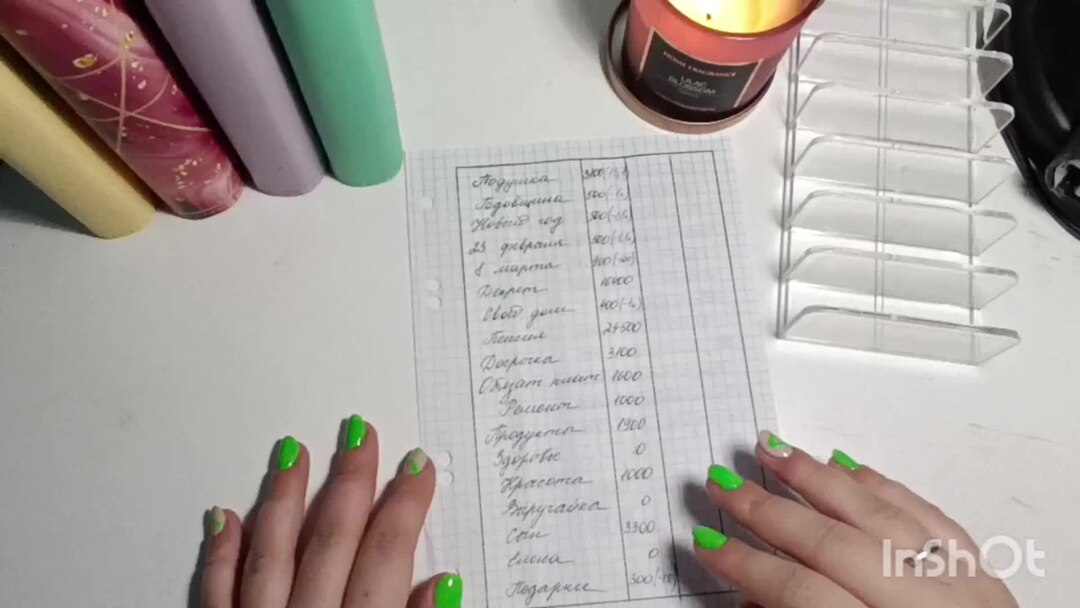 HOME FRAGRANCE
LILAC
BLOSSOM
Подушка
Годовщина 500
Новый год 500
23 февраля 500
8 марта
Декрет 16400
Свой дом 400
Пенсия 24500
Досрочка 3100
Обязат плат 1600
Ремонт 1000
Продукты 1900
Здоровье 0
Красота 1000
Выручайка 0
Сын 3300
Елена 0
Подарки 300
InShOt